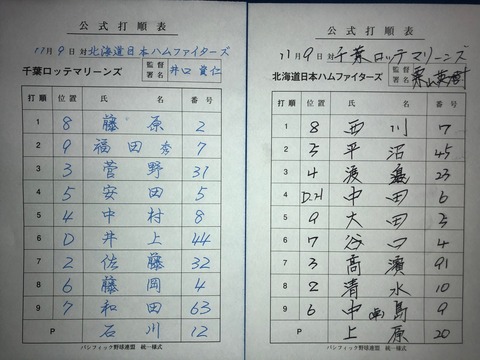 公式打順表
11月9日対北海道日本ハムファイターズ
千葉ロッテマリーンズ 監督署名 井口資仁
打順 位置 氏名 番号
1 8 藤原 2
2 9 福田秀 7
3 3 菅野 31
4 5 安田 5
5 4 中村 8
6 D 井上 44
7 2 佐藤 32
8 6 藤岡 4
9 7 和田 63
P 石川 12
パシフィック野球連盟 統一様式
公式打順表
11月9日対千葉ロッテマリーンズ
北海道日本ハムファイターズ 監督署名 栗山英樹
打順 位置 氏名 番号
1 8 西川 7
2 5 平沼 45
3 4 渡邉 23
4 D.H 中田 6
5 9 大田 5
6 7 谷口 4
7 3 高濱 91
8 2 清水 10
9 6 中島 9
P 上原 20
パシフィック野球連盟 統一様式